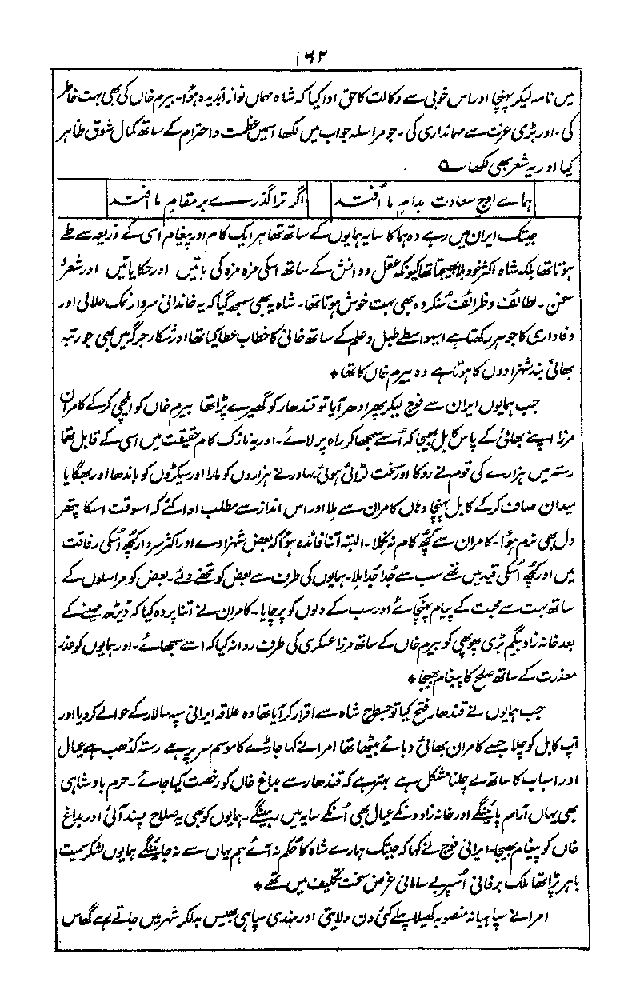 ۱۶۲
میں نامہ لیکر پہنچا اور اس خوبی سے وکالت کا حق ادا کیا کہ شاہ مہماں نواز آبدیدہ ہوا۔ بیرم خاں کی بھی بہت خاطر
کی۔ اور بڑی عزت سے مہمانداری کی۔ جو مراسلہ جواب میں لکھا اسمیں عظمت و احترام کے ساتھ کمال شوق ظاہر
کیا اور یہ شعر بھی لکھا ؎
ہماے اوج سعادت بدام ما اُفتد اگر ترا گذرے بر مقام ما اُفتد
جبتک ایران میں رہے وہ ہما کا سایہ ہمایوں کے ساتھ تھا ہر ایک کام اور پیغام اُسی کے ذریعہ سے طے
ہوتا تھا بلکہ شاہ اکثر خود بلا بھیجتا تھا کیونکہ عقل و دانش کے ساتھ اُسکی مزہ مزہ کی باتیں اور حکایتیں اور شعر و
سخن۔ لطائف و ظرائف سُنکر وہ بھی بہت خوش ہوتا تھا۔ شاہ یہ بھی سمجھ گیا کہ یہ خاندانی سردار نمک حلالی اور
وفاداری کا جوہر رکھتا ہے اسیواسطے طبل و علم کے ساتھ خانی کا خطاب عطا کیا تھا اور شکار جرگہ میں بھی جو رتبہ
بھائی بند شہزادوں کا ہوتا ہے وہ بیرم خاں کا تھا ٭
جب ہمایوں ایران سے فوج لیکر پھر ادھر آیا تو قندھار کو گھیرے پڑا تھا بیرم خاں کو ایلچی کر کے کامران
مرزا اپنے بھائی کے پاس کابل بھیجا کہ اُسے سمجھا کر راہ پر لائے۔ اور یہ نازک کام حقیقت میں اسی کے قابل تھا
رستے میں ہزارے کی قوم نے روکا اور سخت لڑائی ہوئی بہادر نے ہزاروں کو مارا اور سیکڑوں کو باندھا اور بھگایا
میدان صاف کر کے کابل پہنچا وہاں کامران سے ملا اور اس انداز سے مطلب ادا کئے کہ اسوقت اسکا پتھر
دل بھی نرم ہوا۔ کامران سے کچھ کام نہ نکلا۔ البتہ اتنا فائدہ ہوا کہ بعض شہزادے اور اکثر سردار کچھ اُسکی رفاقت
میں اور کچھ اُسکی قید میں تھے سب سے جُدا جُدا ملا۔ ہمایوں کی طرف سے بعض کو تحفے دئے۔ بعض کو مراسلوں کے
ساتھ بہت سے محبت کے پیام پہنچائے اور سب کے دلوں کو پرچایا۔ کامران نے اتنا پردہ کیا کہ ڈیڑھ مہینے کے
بعد خانہ زاد بیگم بڑی پھوپھی کو بیرم خاں کے ساتھ مرزا عسکری کی طرف روانہ کیا کہ اسے سمجھائے۔ اور ہمایوں کو عذر
معذرت کے ساتھ صلح کا پیغام بھیجا ٭
جب ہمایوں نے قندھار فتح کیا تو جسطرح شاہ سے اقرار کر آیا تھا وہ علاقہ ایرانی سپہ سالار کے حوالے کر دیا اور
آپ کابل کو چلا جسے کامران بھائی دبائے بیٹھا تھا امرا نے کہا جاڑے کا موسم سر پر ہے رستہ کڈھب ہے عیال
اور اسباب کا ساتھ لے چلنا مشکل ہے بہتر ہے کہ قندھار سے بداغ خاں کو رخصت کیا جائے۔ حرم بادشاہی
بھی یہاں آرام پائینگے اور خانہ زادونکے عیال بھی اُنکے سایہ میں رہینگے۔ ہمایوں کو بھی یہ صلاح پسند آئی اور بداغ
خاں کو پیغام بھیجا۔ ایرانی فوج نے کہا کہ جبتک ہمارے شاہ کا حکم نہ آئے ہم یہاں سے نہ جائینگے ہمایوں لشکر سمیت
باہر پڑا تھا ملک برفانی اُسپر بے سامانی غرض سخت تکلیف میں تھے ٭
امرا نے سپاہیانہ منصوبہ کھیلا پہلے کئی دن ولایتی اور ہندی سپاہی بھیس بدلکر شہر میں جاتے رہے گھاس